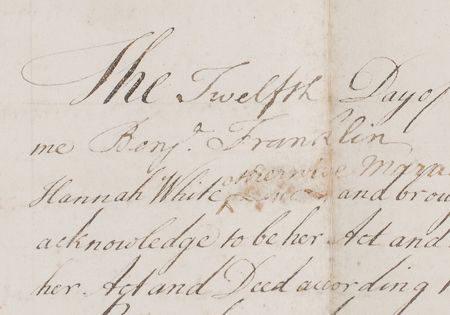 The Twelfth Day of
me Benj.a Franklin
otherwise
Hannah White and
acknowledge to be her Act and
her Act and Deed according